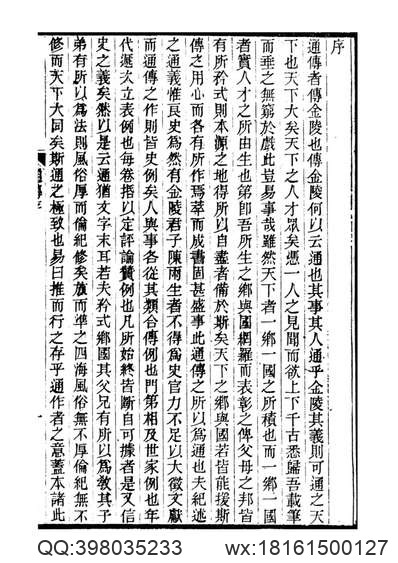 序
通傳者傳金陵也傳金陵何以云通也其事其人通乎金陵其義則可通之天
下也天下大矣天下之人才眾矣憑一人之見聞而欲上下千古悉歸吾載筆
而垂之無窮於戲豈易事哉雖然天下者一鄉一國之所積也而一鄉一國
者實人才之所由生也第卽吾所生之鄉與國網羅而表彰之俾父母之邦皆
有所矜式則本源之地得所以自盡者備於斯矣天下之鄉與國若皆能援斯
傳之用心而各有所作焉萃而成書固甚盛事此通傳之所以爲通也夫紀述
之通義惟良史爲然有金陵君子陳雨生者不得爲史官力不足以大徵文獻
而通傳之作則皆史例矣人與事各從其類合傳例也門第相及世家例也年
代遞次立表例也每卷指以定評論贊例也凡所始終皆斷自可據者是又信
史之義矣然以是云通猶文字末耳若夫矜式鄉國其父兄有所以爲教其子
弟有所以爲法則風俗厚而倫紀修矣放而準之四海風俗無不厚倫紀無不
修而天下大同矣斯通之極致也易曰推而行之存乎通作者之意蓋本諸此
通傳序
一
QQ:398035233 wx:18161500127